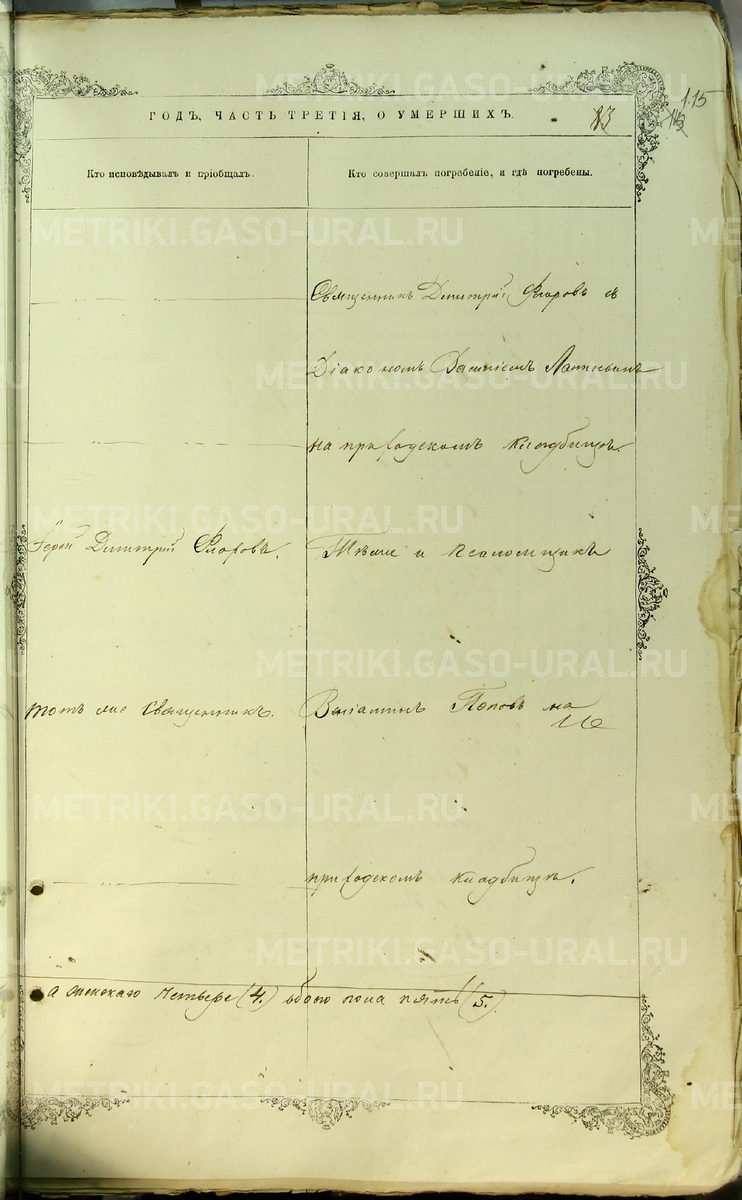 ГОДЪ, ЧАСТЬ ТРЕТІЯ, О УМЕРШИХЪ.
115
Кто исповѣдывалъ и пріобщалъ.
Кто совершалъ погребеніе, и гдѣ погребены.
Священникъ Димитрій Флоровъ съ
Діакономъ
на приходскомъ кладбищѣ.
Іерей Димитрій Флоровъ.
Тѣже и псаломщикъ
тотъ же Священникъ.
Поповъ на
приходскомъ кладбищѣ.
женскаго четыре (4.) обоего пола пять (5.)
METRIKI.GASO-URAL.RU